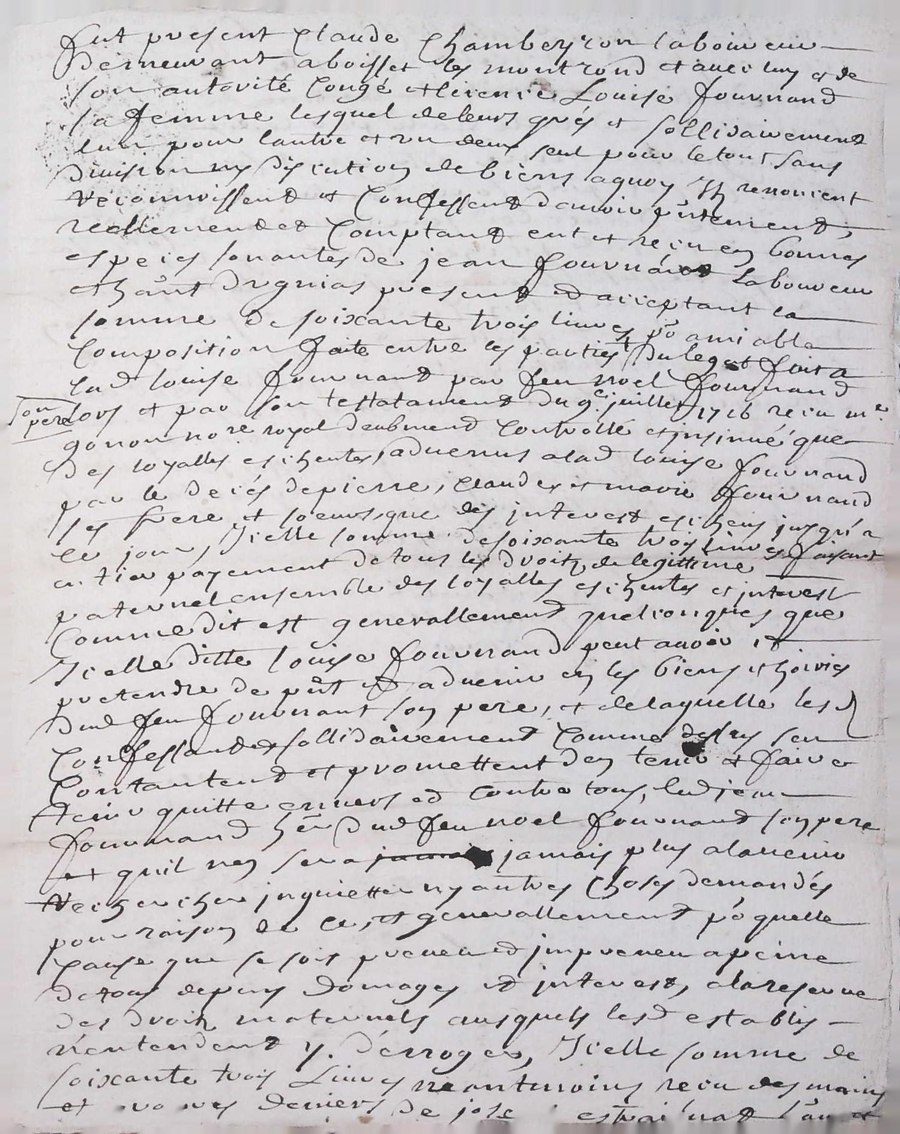 fut present Claude Chambeyron laboureur
demeurant a boisset les montrond et avec luy et de
son autorité Congé et licence Louise fournand
sa femme lesquel de leurs grés et sollidairement
lun pour lautre et un deux seul pour le tout sans
division ny discution de biens aquoy Ils renoncent
reconnoissent et Confessent davoir p̃ntement,
reellement et Comptant eut et recu en bonnes
especes sonantes de jean fournand laboureur
present et acceptant la
somme de soixante trois livres po amiable
Composition faite entre les parties du legat fait a
lad louise fournand par feu noel fournand
son pere
lors et par son testatament du 9e juillet 1716 recu me
gonon nore royal deubment Controllé et insinué que
des loyalles escheutes advenus alad louise fournand
par le decés de pierre, claude et marie fournand
ses frere et soeurs que des interest escheus jusqu'a
ce jour, Icelle somme de soixante trois livres faisant
entier payement de tous les droits de legittime
paternel ensemble des loyalles escheutes et interest
Comme dit est generallement quelconques que
Icelle ditte louise fournand peut avoir et
pretendre de p̃nt et advenir en les biens et hoiries
dud feu fournant son pere, et de laquelle les d
Confessantes sollidairement Comme dessus sen
Contantent et promettent den tenir et faire
tenir quitte envers et contre tous, led jean
fournand her dud feu noel fournand son pere
et quil nen sera jamais plus alavenir
rechercher inquietter ny autres choses demandés
pour raison de ce, et generallement po quelle
cause que se soit preveu et impreveu apeine
de tous depens domages et interest, ala reserve
des droits maternels ausquels lesd establis
n'entendent y derroger, Icelle somme de
soixante trois Livres neantmoins recu des mains
et deniers de